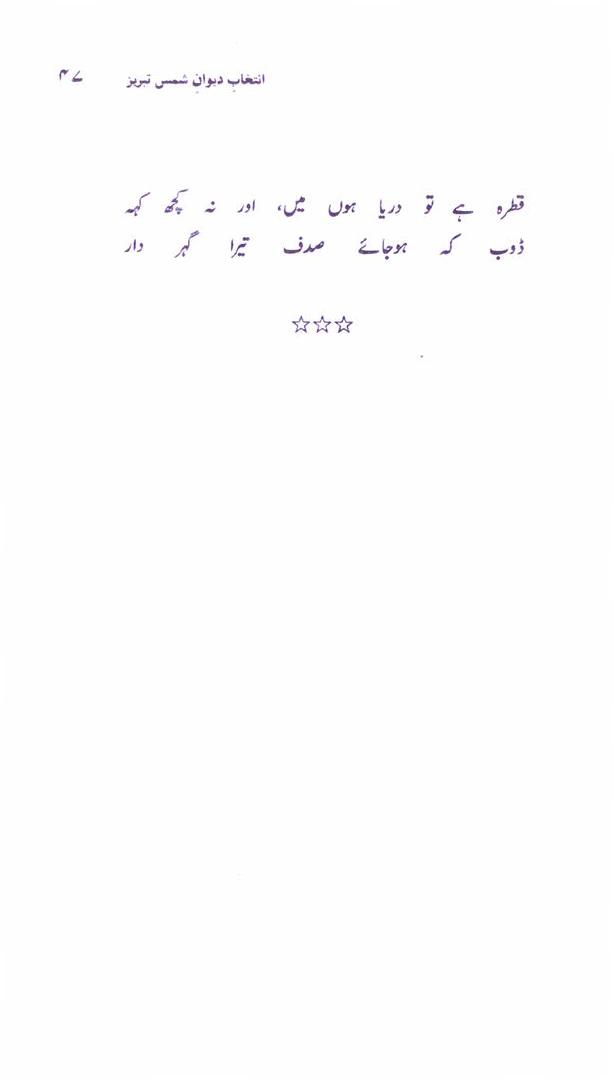 انتخابِ دیوانِ شمس تبریز ۴۷
قطرہ ہے تو دریا ہوں میں، اور نہ کچھ کہہ
ڈوب کہ ہوجائے صدف تیرا گہر دار
☆☆☆